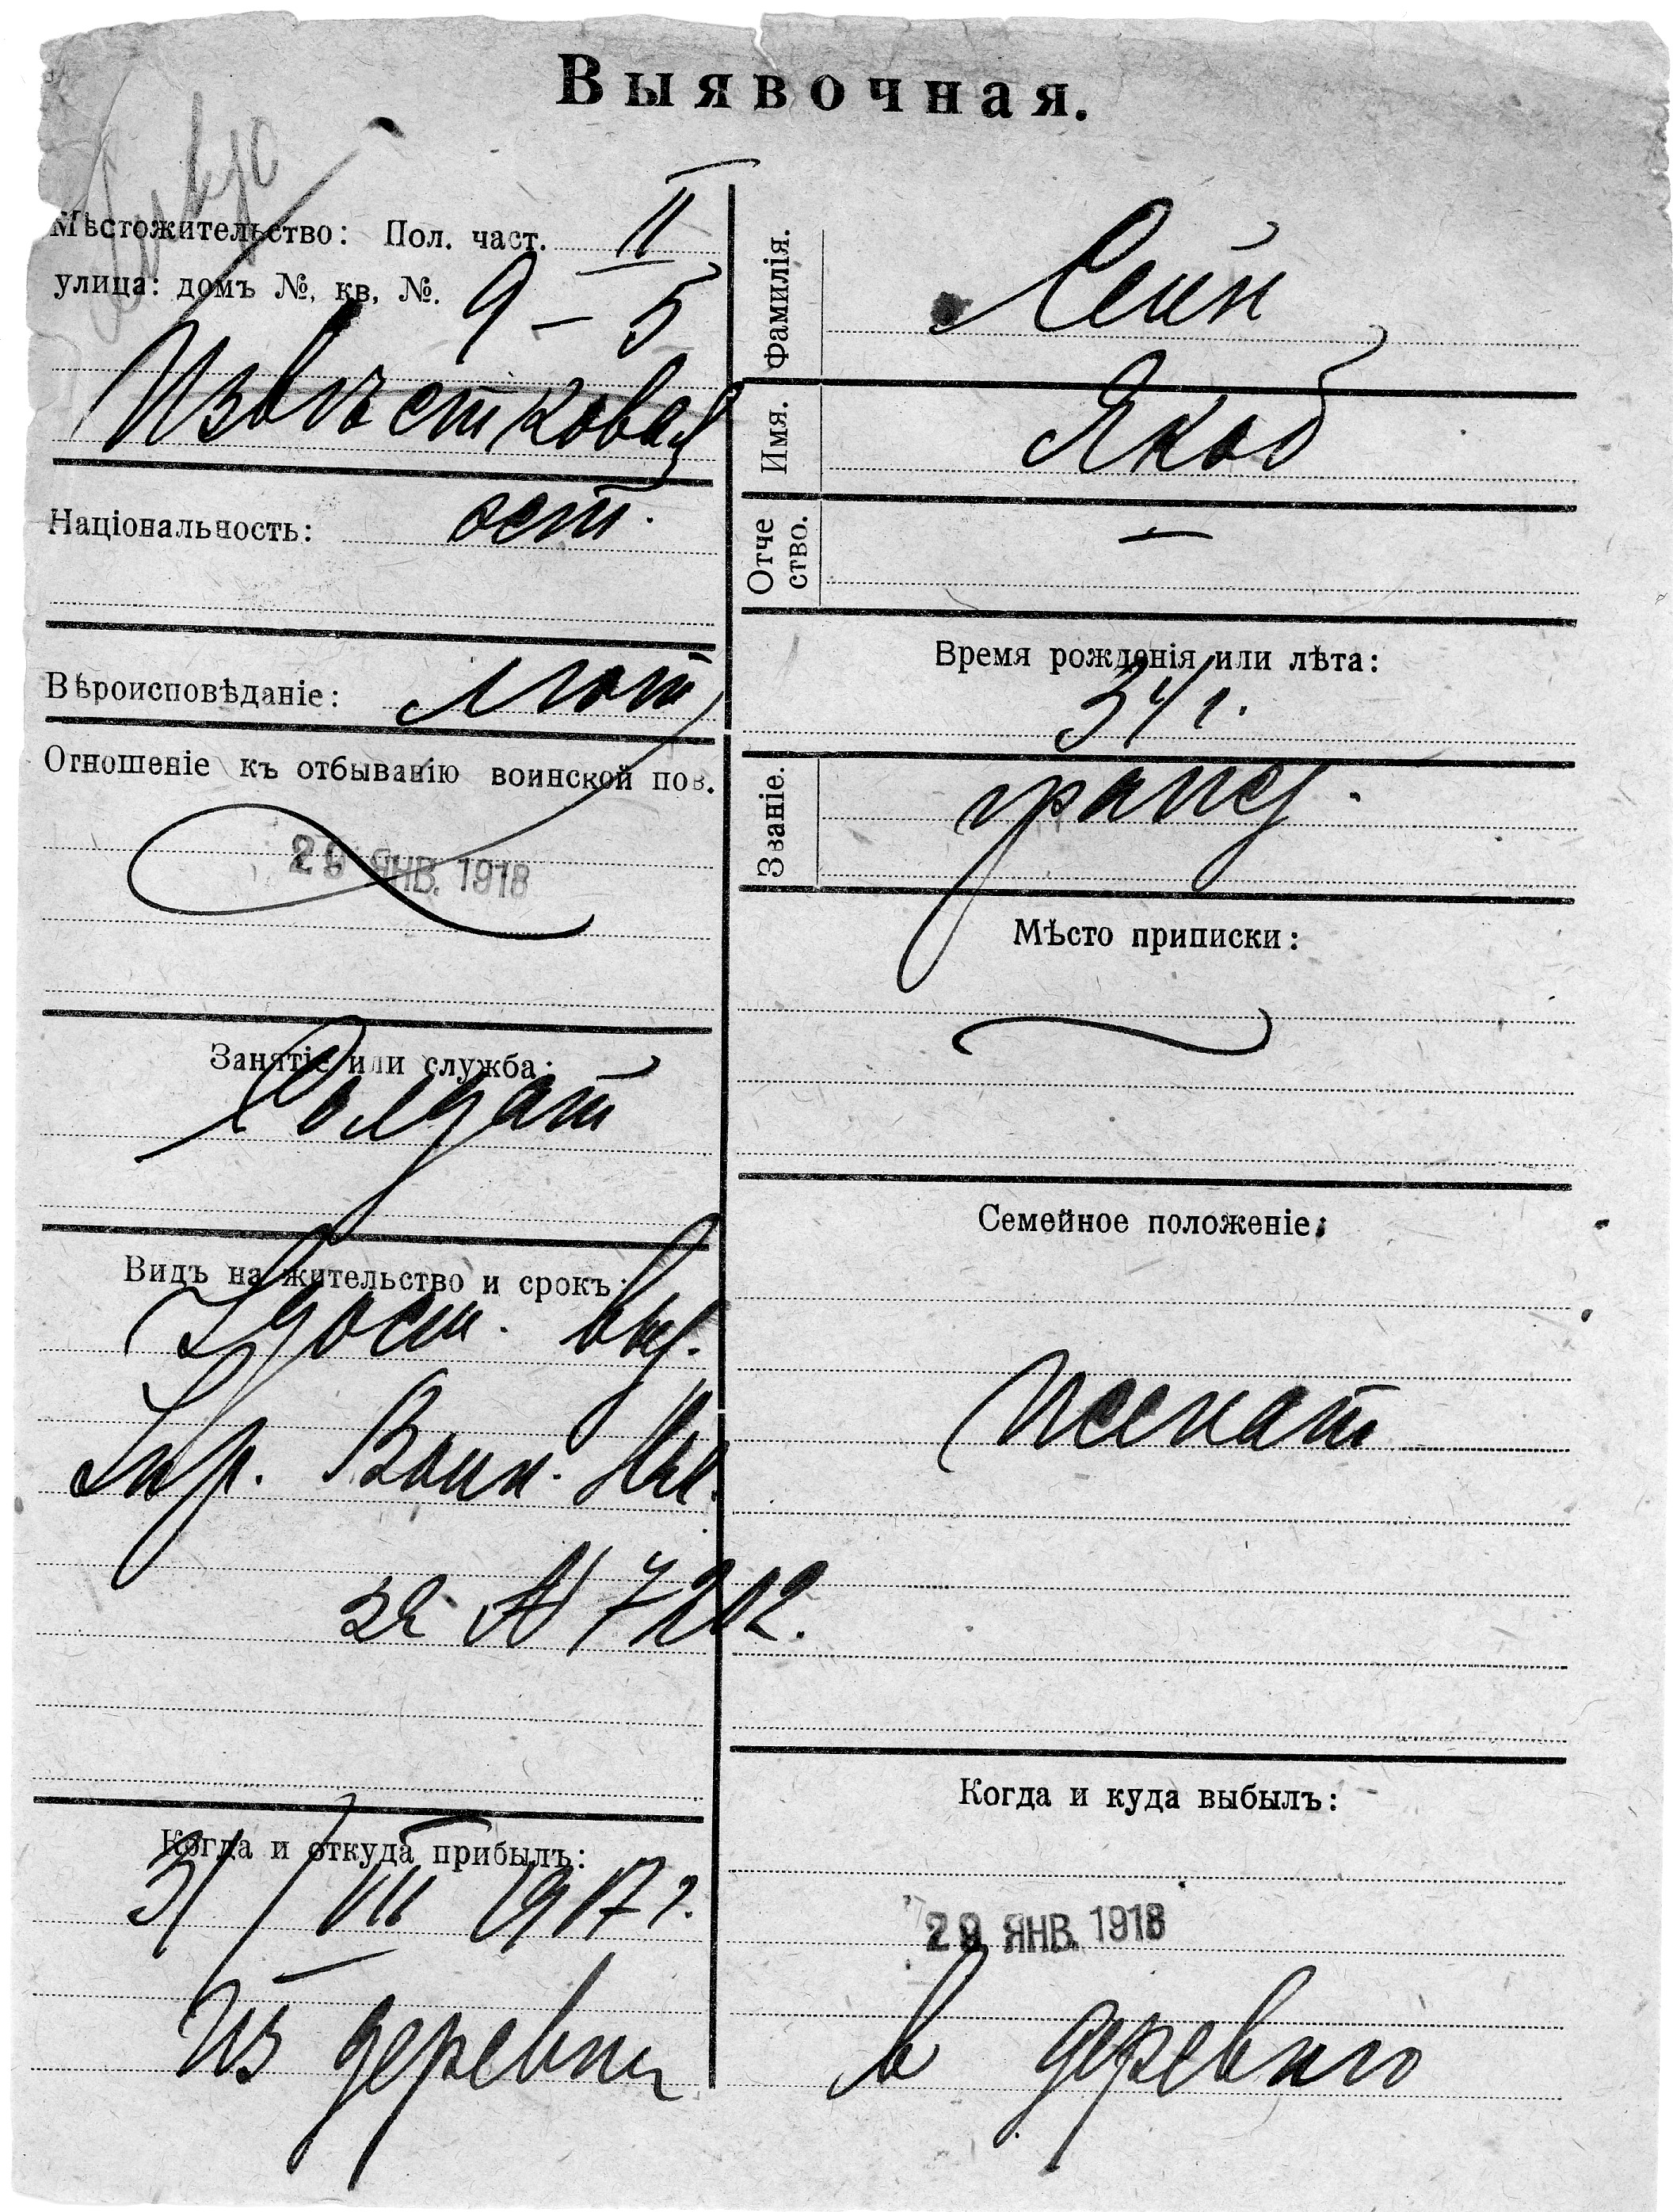 Выявочная.
Мѣстожительство: Пол. част. II
улица: домъ №, кв. №. 9 – 5
Извѣстковая
Національность: эст.
Вѣроисповѣданіе: лют
Отношеніе къ отбыванію воинской пов.
29 ЯНВ. 1918
Занятіе или служба:
Солдат
Видъ на жительство и срокъ:
Удост. выд.
Упр. Воин. Нач.
за № 7202.
Когда и откуда прибылъ:
31/VIII 1917 г.
из деревни
Фамилія. Лейн
Имя. Якоб
Отчество. —
Время рожденія или лѣта:
34 г.
Званіе. гражд.
Мѣсто приписки:
Семейное положеніе:
женат
Когда и куда выбылъ:
29 ЯНВ. 1918
в деревню